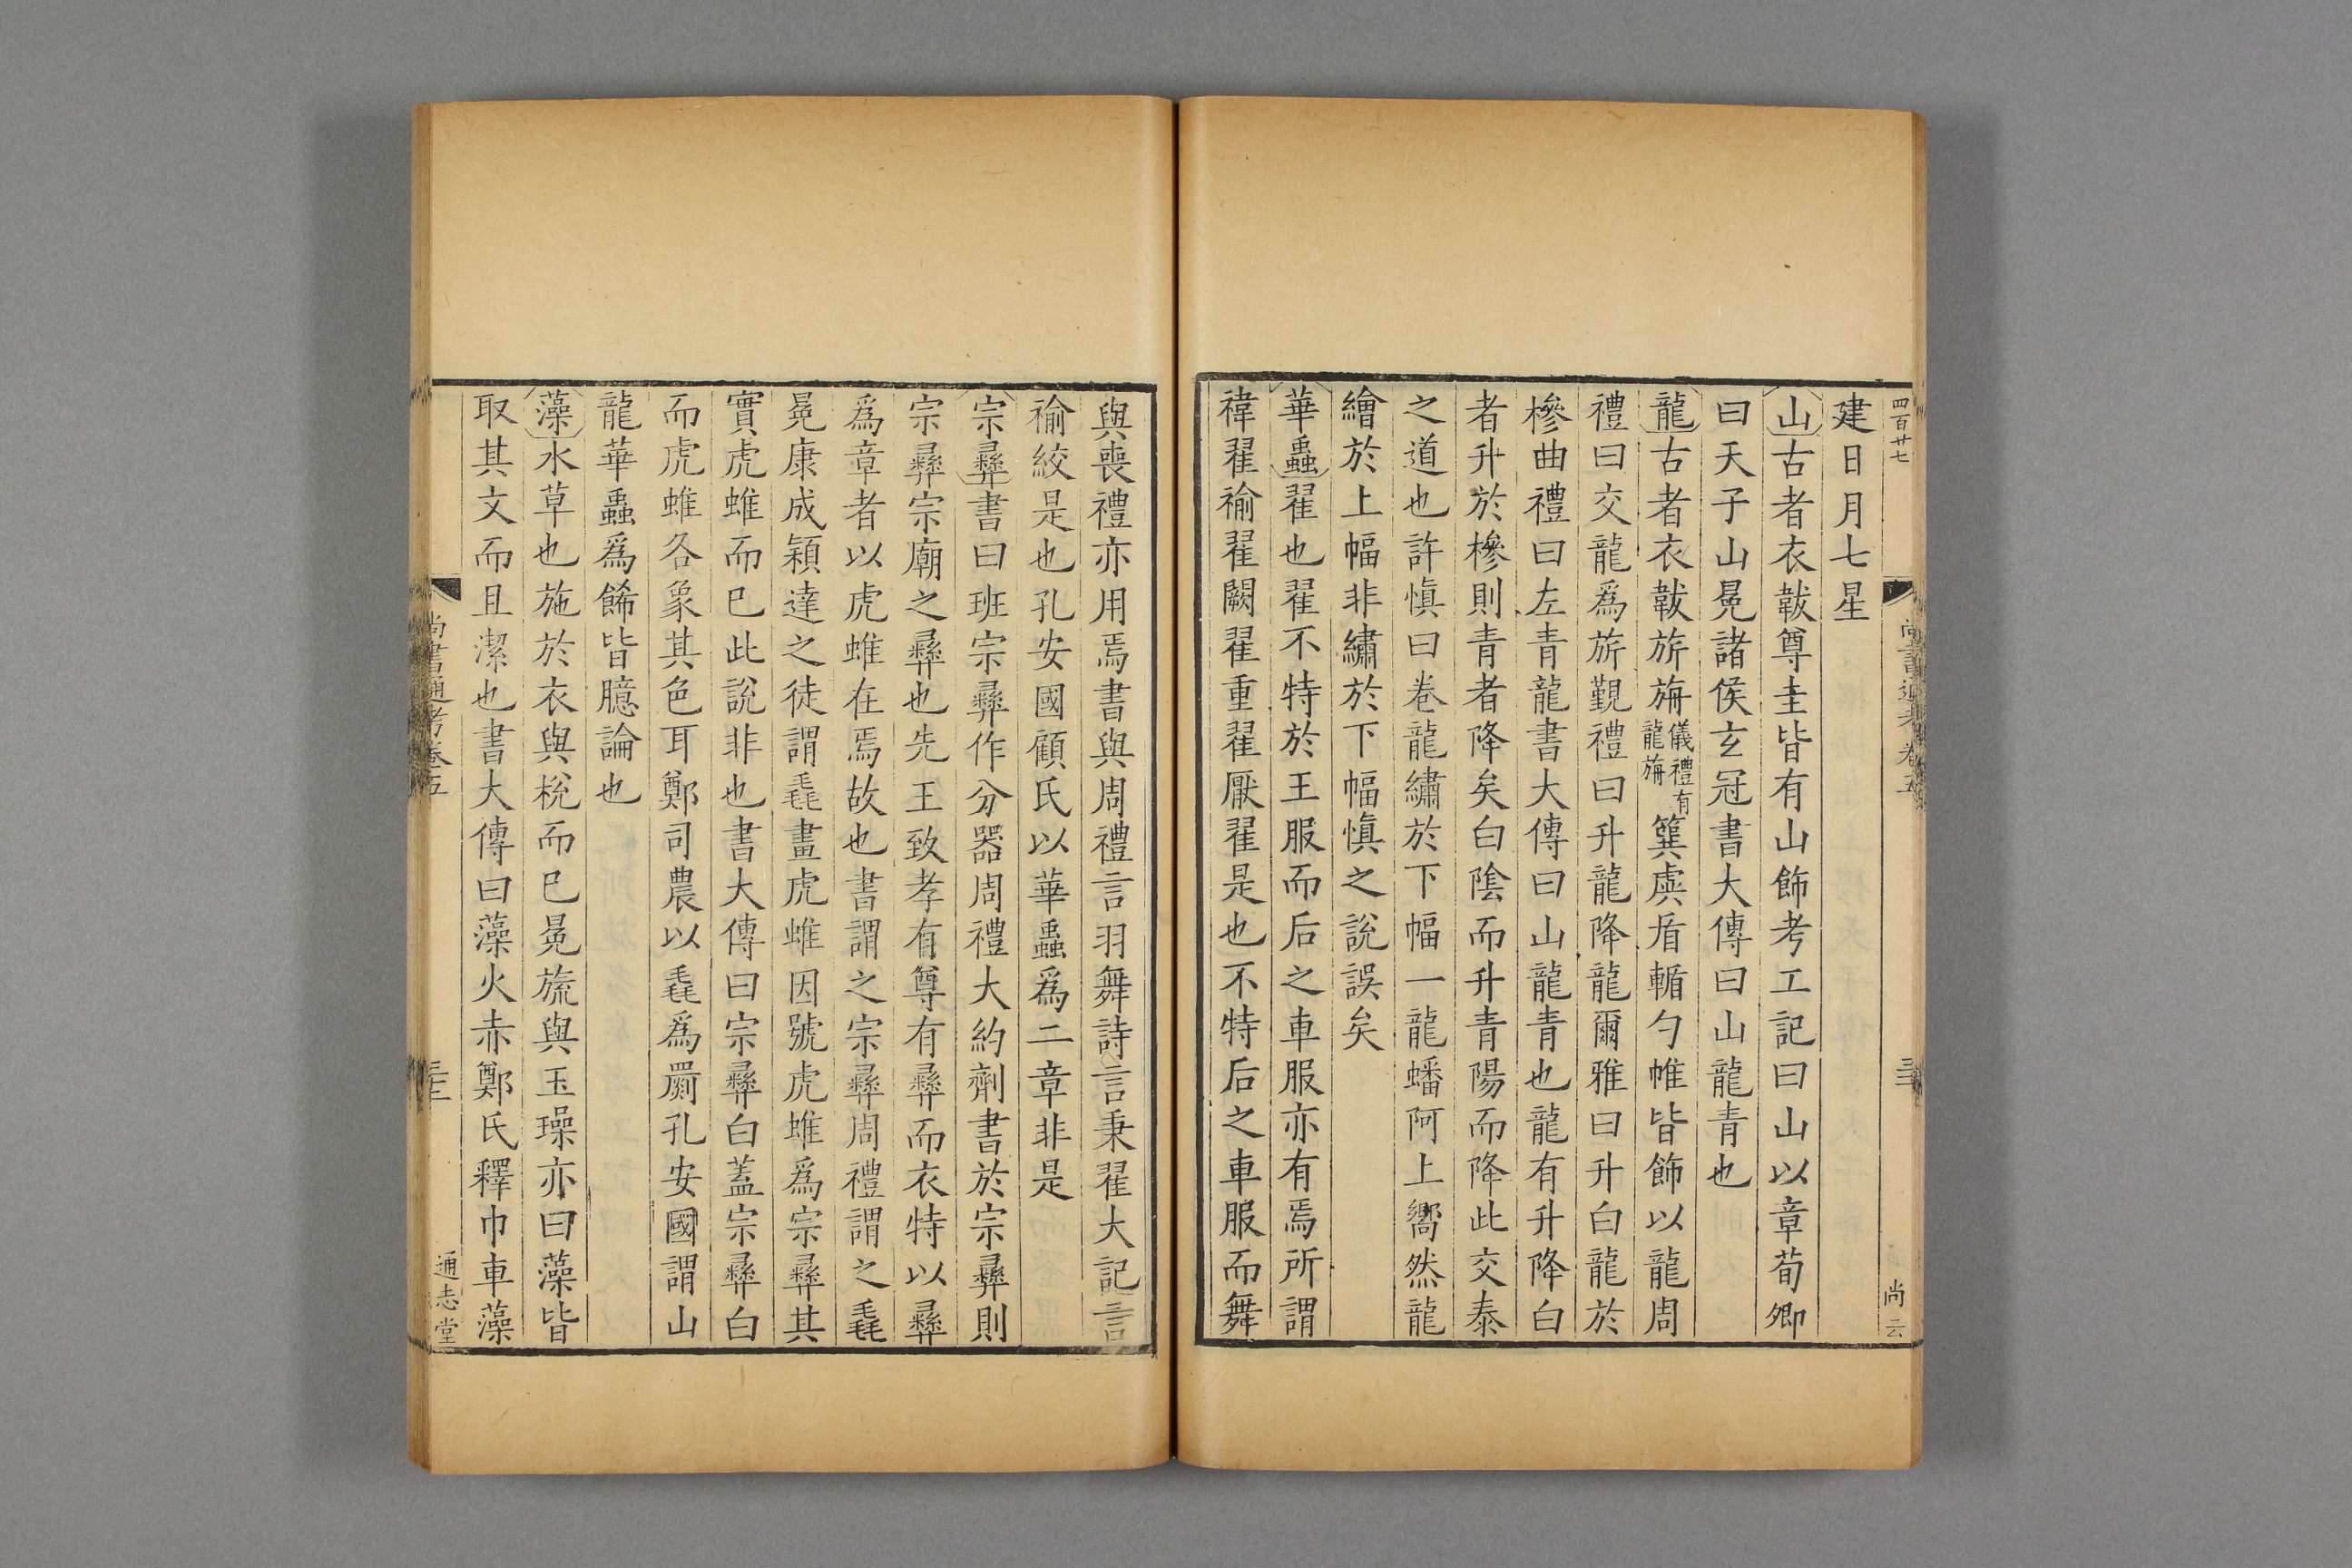 四百廿七
尚書通考卷五
尚云
建日月七星
山古者衣韍尊圭皆有山飾考工記曰山以章荀卿
曰天子山冕諸侯玄冠書大傳曰山龍青也
龍古者衣韍旂旃儀禮有龍旃簨虡盾輴勺帷皆飾以龍周
禮曰交龍爲旂覲禮曰升龍降龍爾雅曰升白龍於
槮曲禮曰左青龍書大傳曰山龍青也龍有升降白
者升於槮則青者降矣白陰而升青陽而降此交泰
之道也許愼曰卷龍繡於下幅一龍蟠阿上嚮然龍
繪於上幅非繡於下幅愼之說誤矣
華蟲翟也翟不特於王服而后之車服亦有焉所謂
褘翟褕翟闕翟重翟厭翟是也不特后之車服而舞
與喪禮亦用焉書與周禮言羽舞詩言秉翟大記言
褕絞是也孔安國顧氏以華蟲爲二章非是
宗彝書曰班宗彝作分器周禮大約劑書於宗彝則
宗彝宗廟之彝也先王致孝有尊有彝而衣特以彝
爲章者以虎蜼在焉故也書謂之宗彝周禮謂之毳
冕康成穎達之徒謂毳畫虎蜼因號虎蜼爲宗彝其
實虎蜼而已此說非也書大傳曰宗彝白蓋宗彝白
而虎蜼各象其色耳鄭司農以毳爲罽孔安國謂山
龍華蟲爲飾皆臆論也
藻水草也施於衣與梲而已冕旒與玉璪亦曰藻皆
取其文而且潔也書大傳曰藻火赤鄭氏釋巾車藻
尚書通考卷五
通志堂